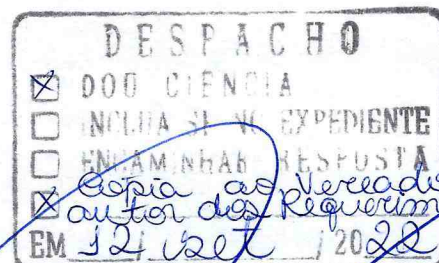 DESPACHO
DOU CIÊNCIA
INCLUA SE NO EXPEDIENTE
ENCAMINHAR RESPOSTA
Cópia ao Vereado
autor dos Requerim
EM 12 / set / 2022